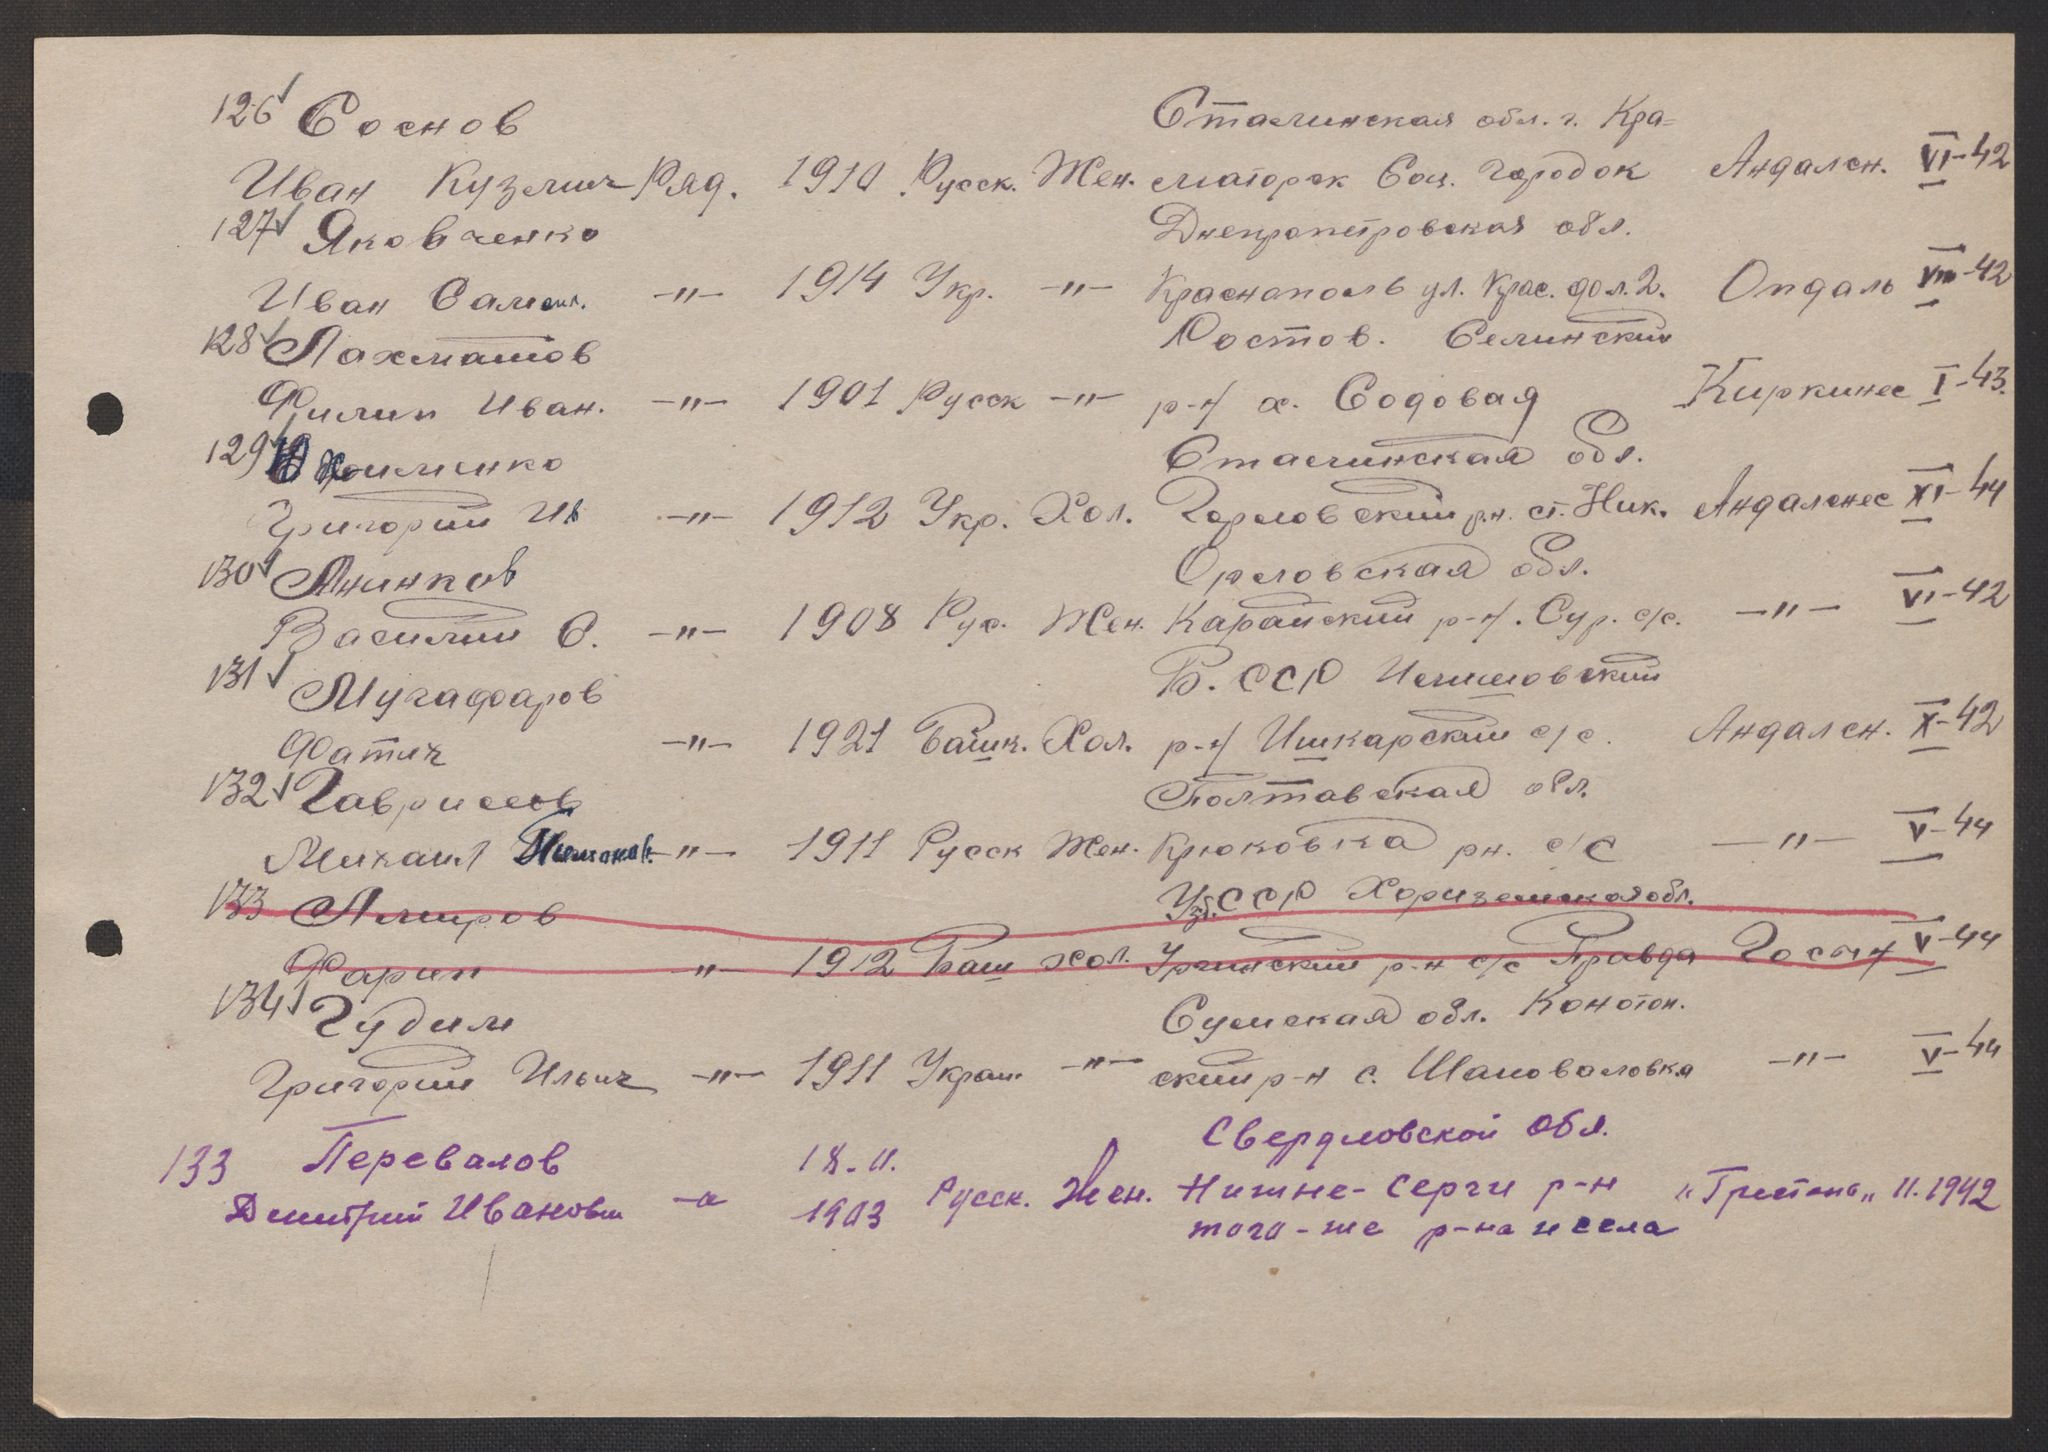 126 Соснов Сталинская обл. г. Кра=
Иван Кузмич Ряд. 1910 Русск. Жен. маторск Соц. городок Андалсн. VI-42
127 Яковченко Днепропетровская обл.
Иван Самоил. -"- 1914 Укр. -"- Краснополь ул. Крас. дол.2. Опдаль VIII-42
128 Лахматов Ростов. Селинский
Филип Иван. -"- 1901 Русск -"- р-н х. Содовая Киркинес I-43.
129 Сталинская обл.
Григорий Ив -"- 1912 Укр. Хол. Горловский р.н. ст. Ник. Андалснес XI-44
130 Аникков Орловская обл.
Василий С. -"- 1908 Рус. Жен. Карайский р-н. Сур. с/с. -"- VI-42
131 Мугафаров Б. ССР
Фатих -"- 1921 Башк. Хол. р-н Ишкарский с/с. Андалсн. X-42
132 Гаврилов Полтавская обл.
Михаил -"- 1911 Русск Жен. Крюковка рн. с/с -"- V-44
133 Амиров Узб. ССР Хориземская обл.
Фарип -"- 1912 Баш хол. Ургинский р-н с/с Правда V-44
134 Гудим Сумская обл. Конотоп.
Григорий Ильич -"- 1911 Украин -"- ский р-н с. Шаповаловка -"- V-44
133 Перевалов 18.II. Свердловской обл.
Дмитрий Иванович -"- 1903 Русск. Жен. Нижне-Серги р-н 11.1942
того-же р-на и села